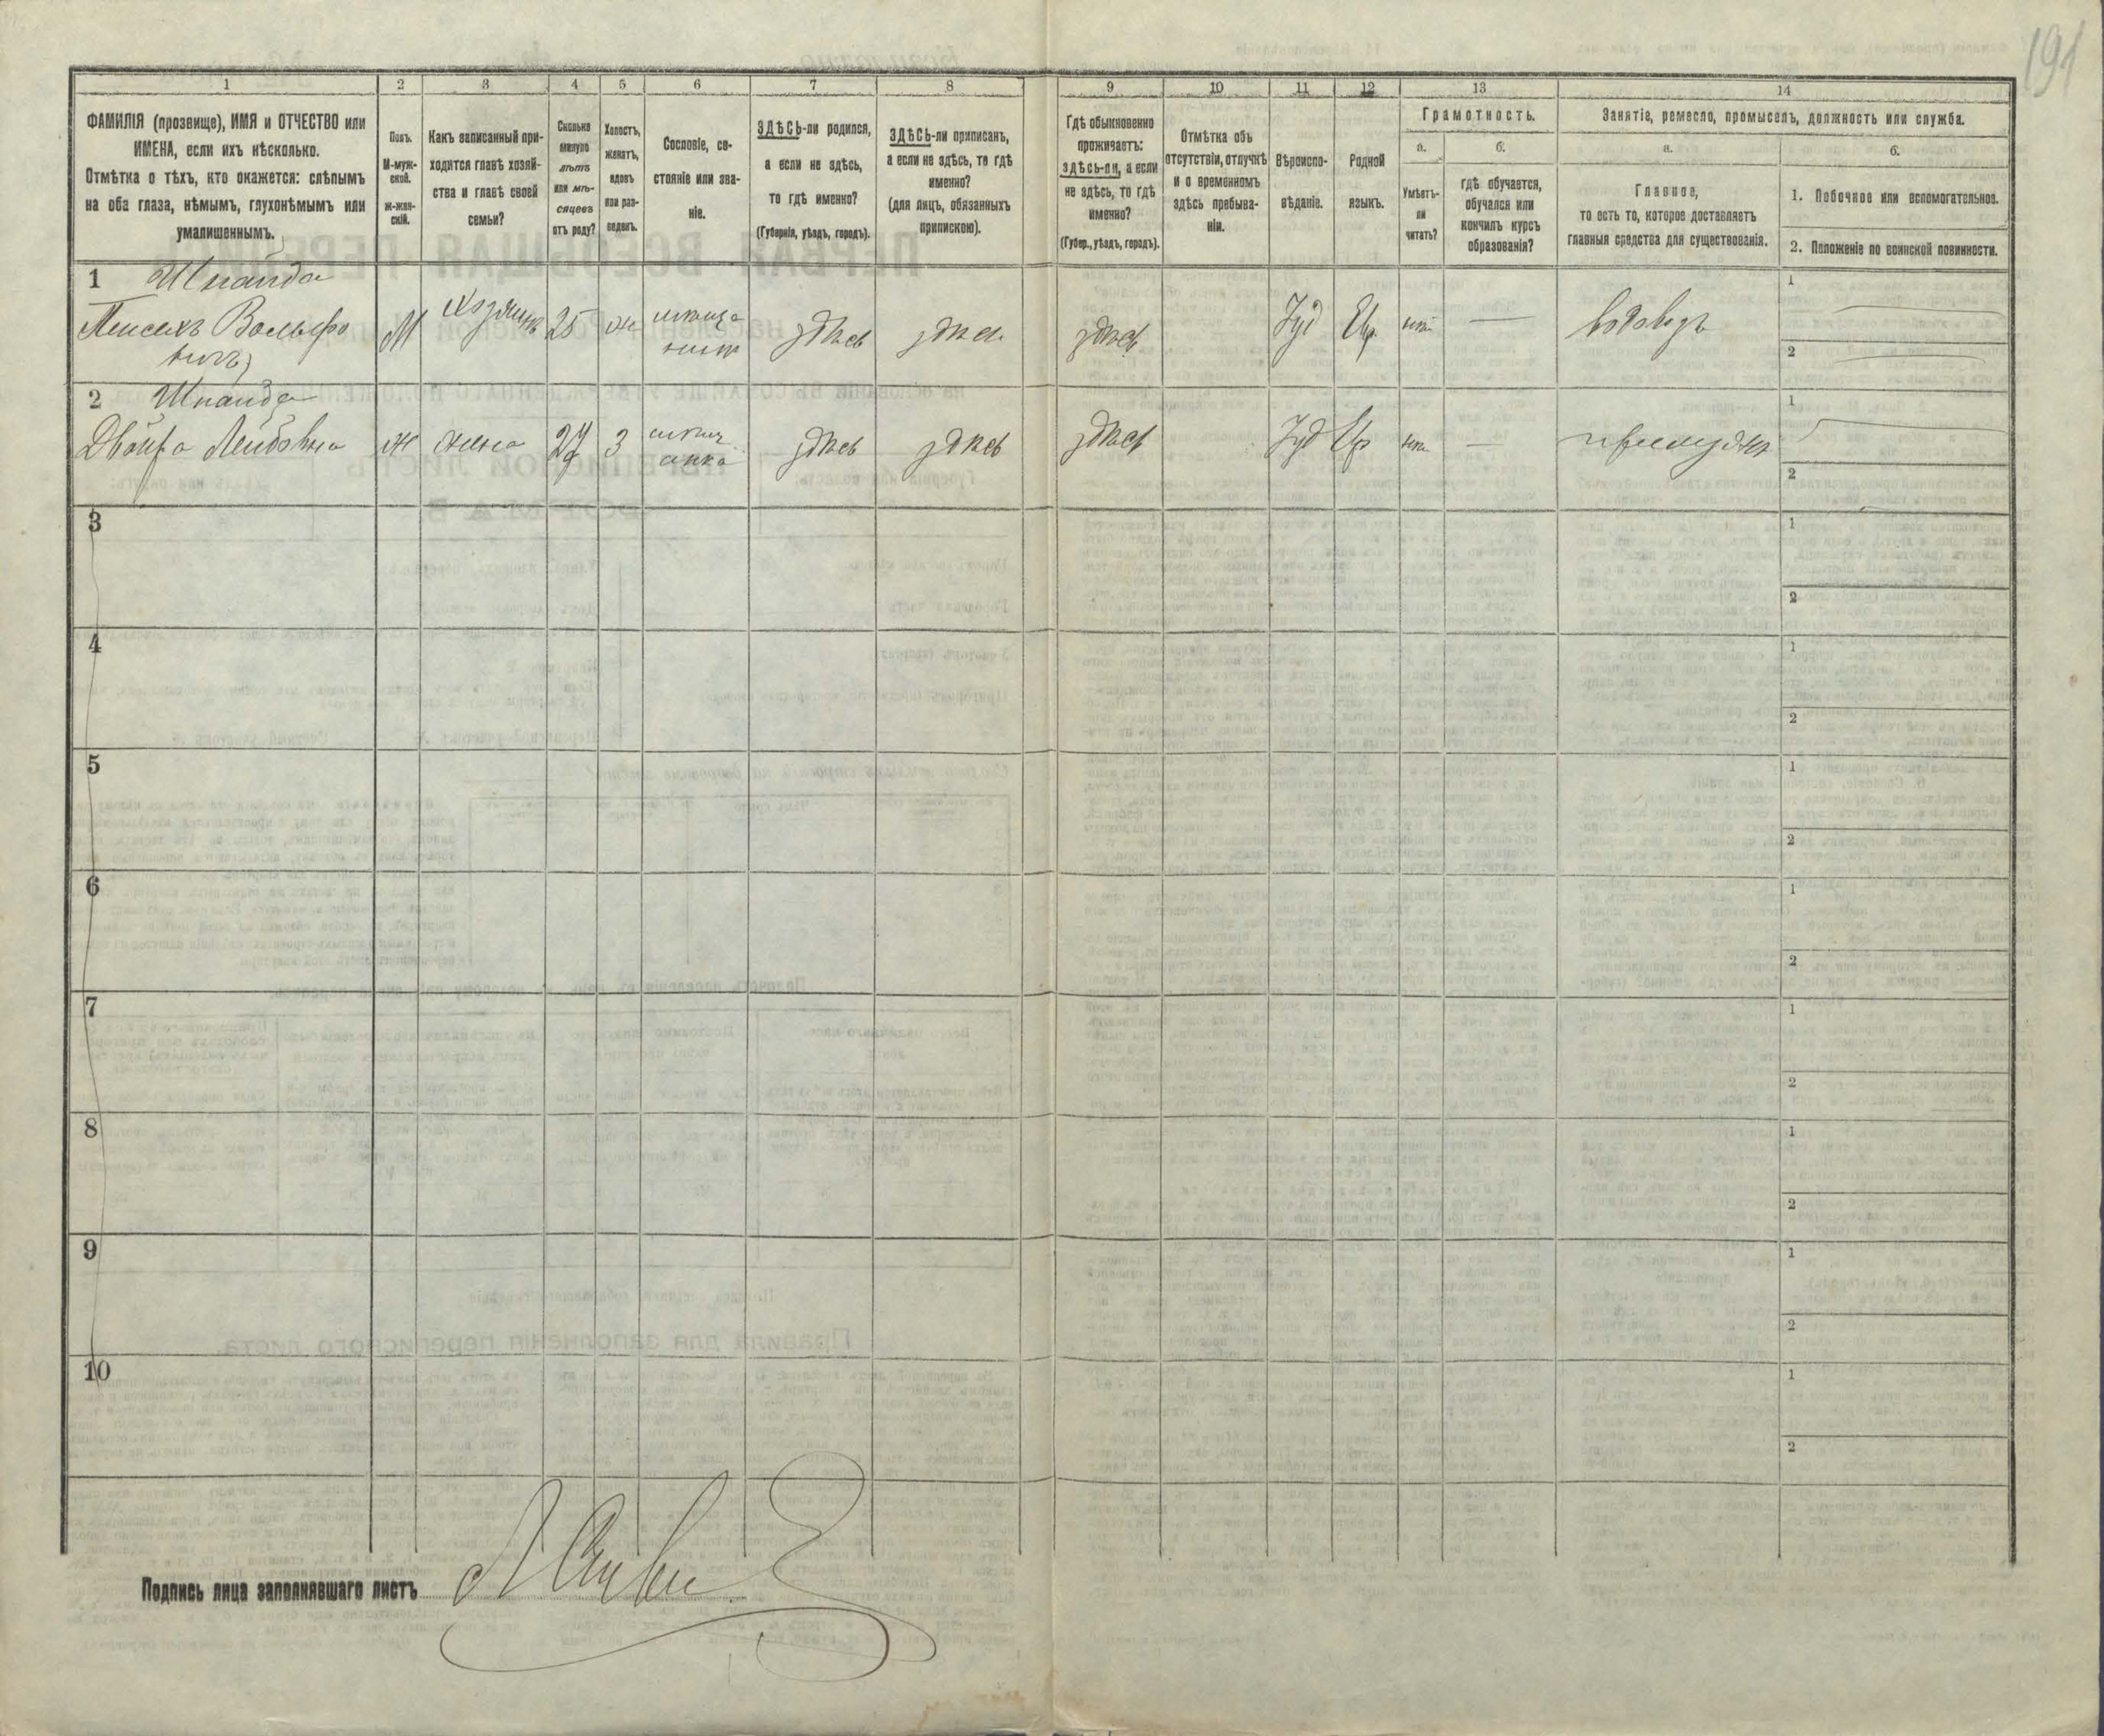 191
1
2
3
4
5
6
7
8
9
10
11
12
13
14
ФАМИЛІЯ (прозвище), ИМЯ и ОТЧЕСТВО или
ИМЕНА, если ихъ нѣсколько.
Отмѣтка о тѣхъ, кто окажется: слѣпымъ
на оба глаза, нѣмымъ, глухонѣмымъ или
умалишеннымъ.
Полъ.
М-муж-
ской.
Ж-жен-
скій.
Какъ записанный при-
ходится главѣ хозяй-
ства и главѣ своей
семьи?
Сколько
минуло
лѣтъ
или мѣ-
сяцевъ
отъ роду?
Холостъ,
женатъ,
вдовъ
или раз-
веденъ.
Сословіе, со-
стояніе или зва-
ніе.
ЗДѢСЬ-ли родился,
а если не здѣсь,
то гдѣ именно?
(Губернія, уѣздъ, городъ).
ЗДѢСЬ-ли приписанъ,
а если не здѣсь, то гдѣ
именно?
(для лицъ, обязанныхъ
припискою).
Гдѣ обыкновенно
проживаетъ:
здѣсь-ли, а если
не здѣсь, то гдѣ
именно?
(Губер., уѣздъ, городъ).
Отмѣтка объ
отсутствіи, отлучкѣ
и о временномъ
здѣсь пребыва-
ніи.
Вѣроиспо-
вѣданіе.
Родной
языкъ.
Грамотность.
а.
Умѣетъ-
ли
читать?
б.
гдѣ обучается,
обучался или
кончилъ курсъ
образованія?
Занятіе, ремесло, промыселъ, должность или служба.
а.
Главное,
то есть то, которое доставляетъ
главныя средства для существованія.
б.
1. Побочное или вспомогательное.
2. Положеніе по воинской повинности.
1 Шпайда
Пейсахъ Вольфо
вичъ М хозяинъ 25 ж мѣща
нинъ здѣсь здѣсь здѣсь Іуд Евр нѣт — водовозъ 1 — 2 —
2 Шпайда
Двойра Лейбовна ж жена 27 З мѣщ
анка здѣсь здѣсь здѣсь Іуд Евр нѣт — 1 — 2
3 1 2
4 1 2
5 1 2
6 1 2
7 1 2
8 1 2
9 1 2
10 1 2
Подпись лица заполнявшаго листъ